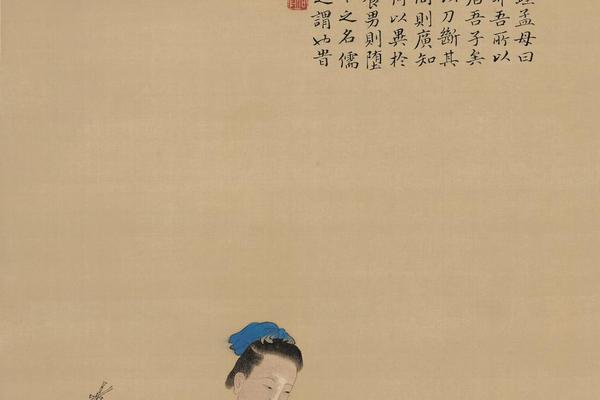 孟母曰
吾所以
居吾子矣
以刀斷其
問則廣知
何以異於
男則墮
之名儒
之謂也昔